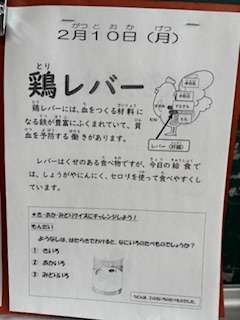 2月10日（月）
鶏レバー
鶏レバーには、血をつくる材料に
なる鉄が豊富にふくまれていて、貧
血を予防する働きがあります。
レバー（肝臓）
レバーはくせのある食べ物ですが、今日の給食で
は、しょうがやにんにく、セロリを使って食べやすくし
ています。
★き・あか・みどりクイズにチャレンジしよう！
もんだい
ようなしは、はたらきでわけると、なにいろのたべものでしょうか？
① きいろ
② あかいろ
③ みどりいろ